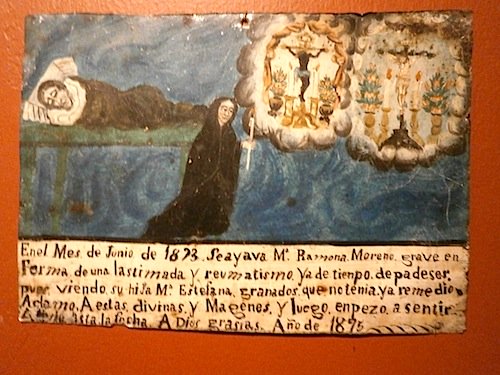 En el Mes. de Junio de 1873. Seayava Mᵃ. Ramona. Moreno. grave en
ferma. de una lastimada. y. reumatismo. Ya de tienpo. de padeser.
pues. viendo. su hija Mᵃ. Estefana. granados. que no tenia. ya remedio
Aclamo. A estas. divinas. y Magenes. y luego. enpezo. a sentir
asta la fecha. A Dios grasias. Año de 1875